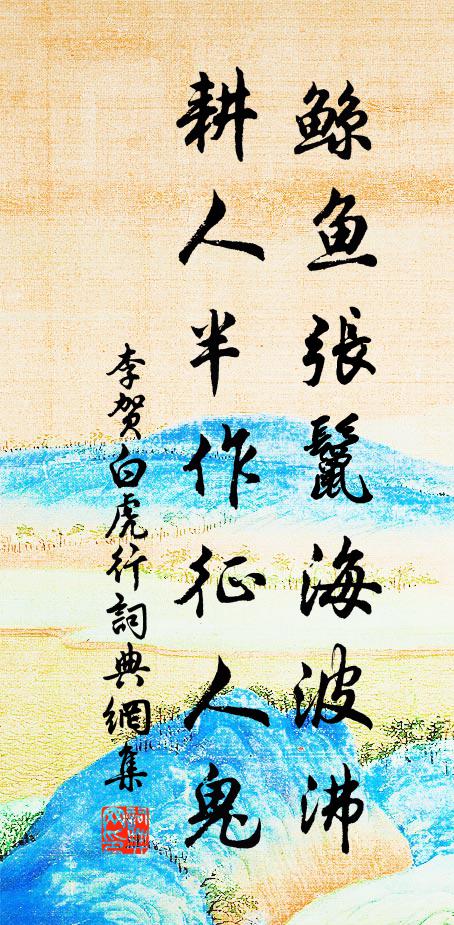 鲸鱼張鬣海波沸
耕人半作征人鬼
李贺白虎行詞典網集